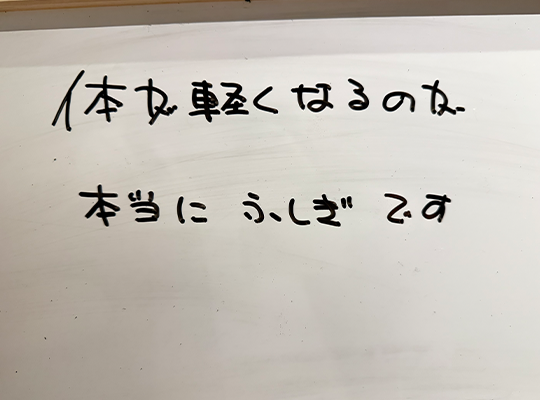 体が軽くなるのが
本当に ふしぎ です